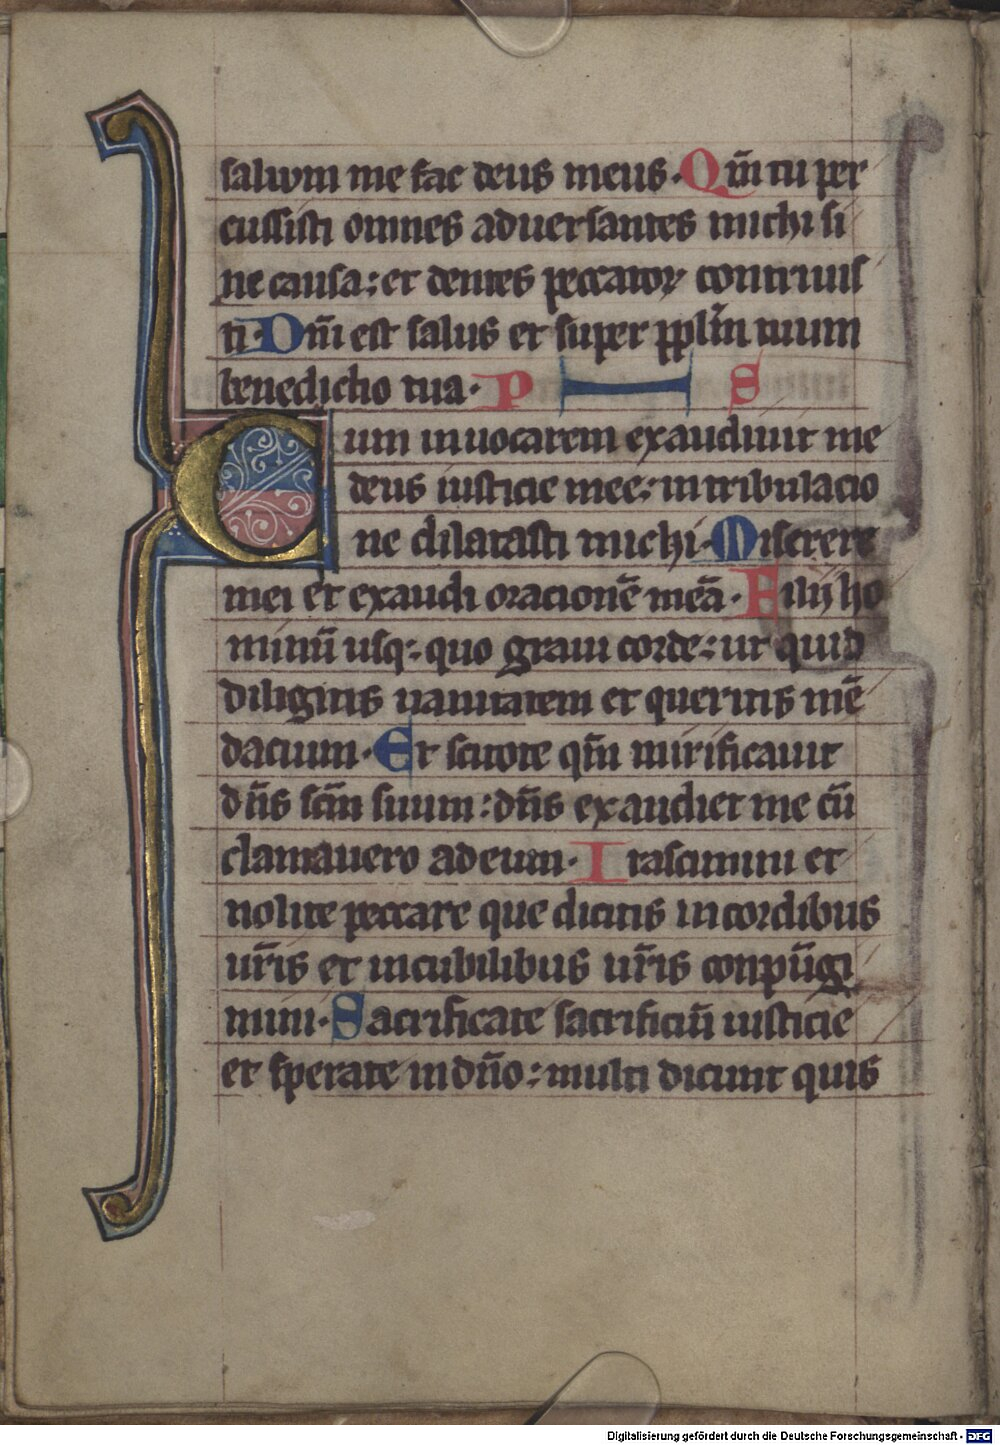 saluum me fac deus meus. Qm̄ tu per
cussisti omnes aduersantes michi si
ne causa: et dentes peccatoꝝ contriuis
ti. Dn̄i est salus et super pplm̄ tuum
benedictio tua. P S
Cum inuocarem exaudiuit me
deus iusticie mee: in tribulacio
ne dilatasti michi. Miserere
mei et exaudi oracionē meā. Filij ho
minū usq: quo graui corde: ut quid
diligitis uanitatem et queritis mē
dacium. Et scitote qm̄ mirificauit
dn̄s scm̄ suum: dn̄s exaudiet me cū
clamauero ad eum. Irascimini et
nolite peccare que dicitis in cordibus
ur̄is et in cubilibus ur̄is conpūgi
mini. Sacrificate sacrificiū iusticie
et sperate in dn̄o: multi dicunt quis
Digitalisierung gefördert durch die Deutsche Forschungsgemeinschaft - DFG